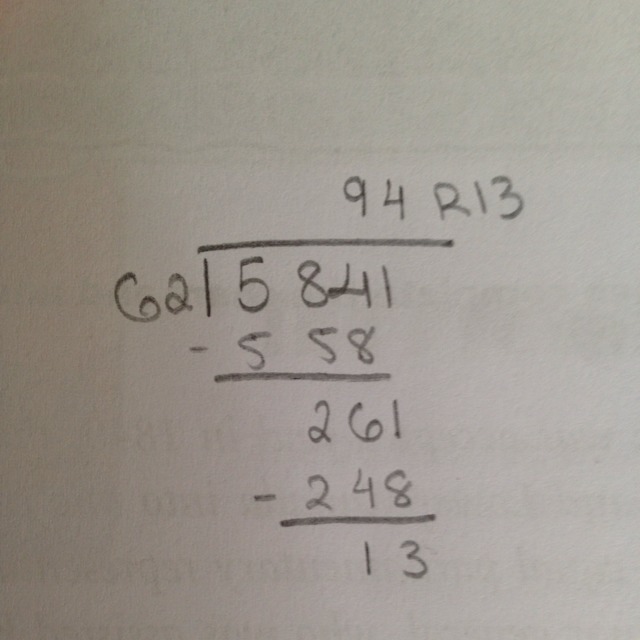 94 R13
62 5 841
- 5 58
261
- 248
13